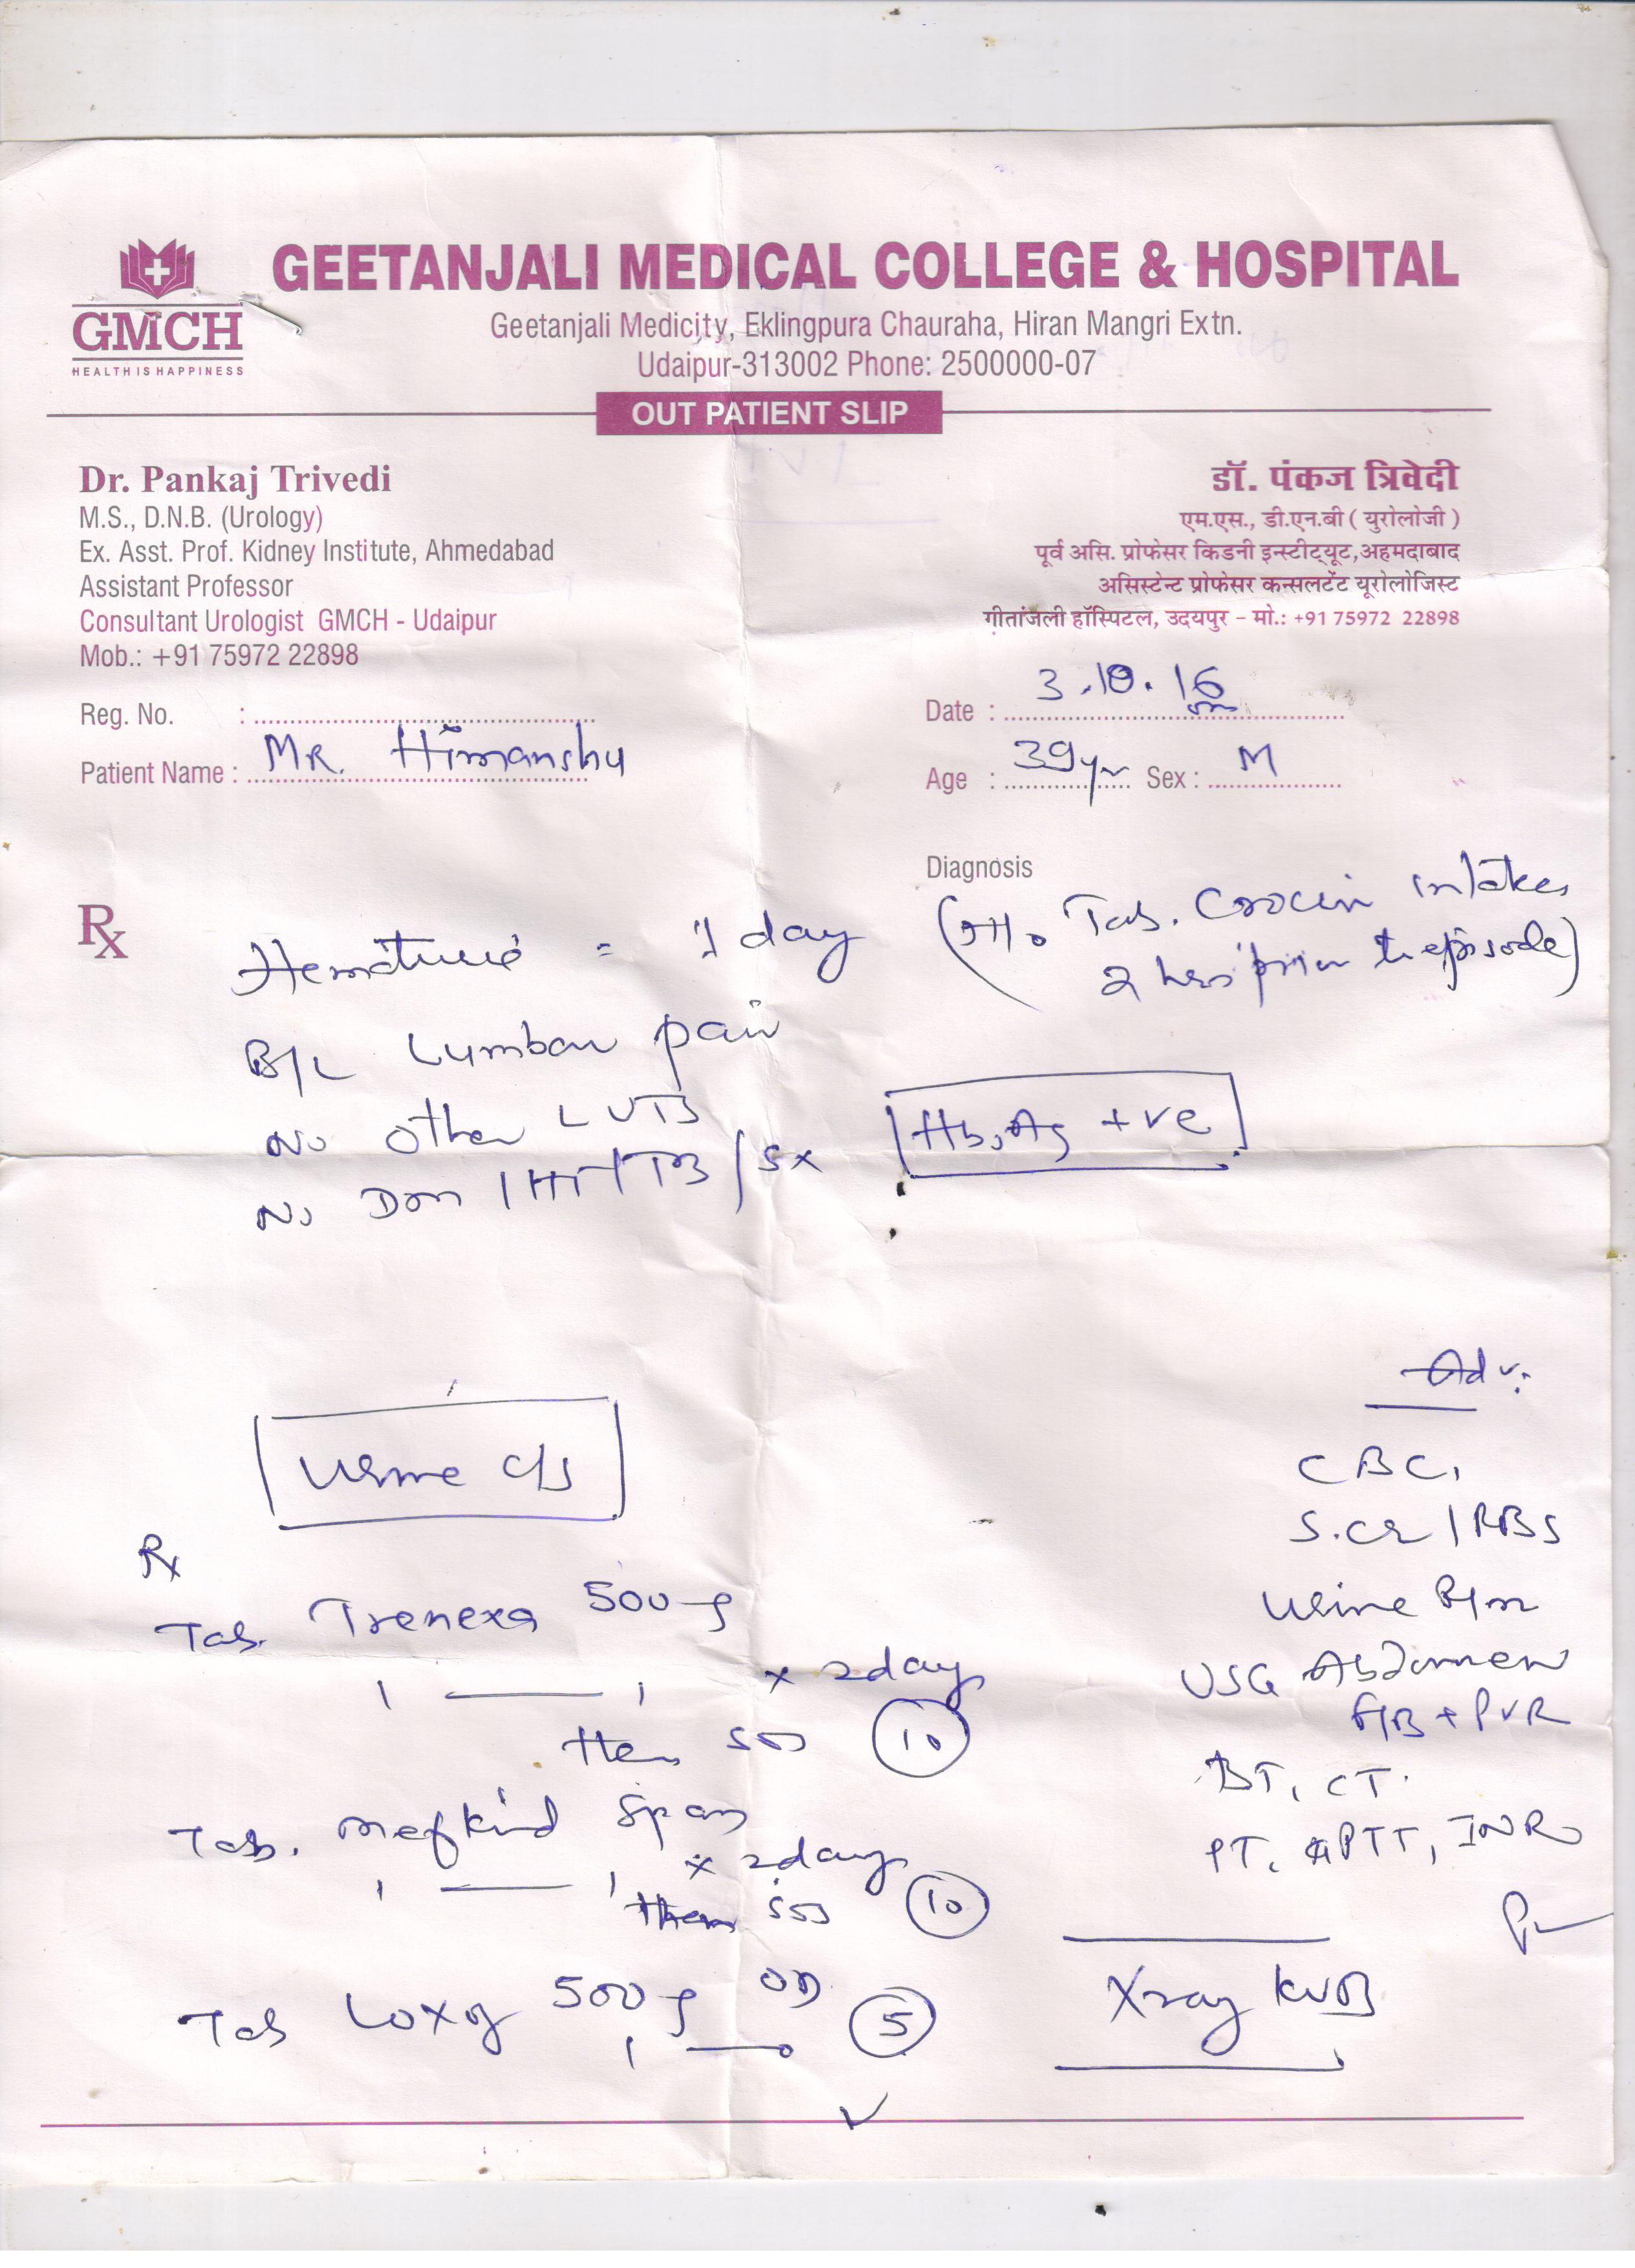 GMCH
HEALTH IS HAPPINESS
GEETANJALI MEDICAL COLLEGE & HOSPITAL
Geetanjali Medicity, Eklingpura Chauraha, Hiran Mangri Extn.
Udaipur-313002 Phone: 2500000-07
OUT PATIENT SLIP
Dr. Pankaj Trivedi
M.S., D.N.B. (Urology)
Ex. Asst. Prof. Kidney Institute, Ahmedabad
Assistant Professor
Consultant Urologist GMCH - Udaipur
Mob.: +91 75972 22898
डॉ. पंकज त्रिवेदी
एम.एस., डी.एन.बी ( युरोलोजी )
पूर्व असि. प्रोफेसर किडनी इन्स्टीट्यूट,अहमदाबाद
असिस्टेन्ट प्रोफेसर कन्सलटेंट यूरोलोजिस्ट
गीतांजली हॉस्पिटल, उदयपुर - मो.: +91 75972 22898
Reg. No. :
Date : 3.10.16
Patient Name : MR. Himanshu
Age : 39yr Sex : M
Diagnosis
Rx
Hematuria = 1 day
(H/o Tab. Crocin intake
2 hrs prior to episode)
B/L Lumbar pain
No other LUTS
HbsAg +ve
No Dm / HT / TB / Sx
Adv:
CBC,
S.Cr / RBS
Urine R/m
USG Abdomen
+ PVR
BT, CT.
PT, APTT, INR
Xray KUB
Urine c/s
Rx
Tab. Trenexa 500
1 — 1 x 2days
then SOS 10
Tab. Mefkind Spas
1 — 1 x 2days
then SOS 10
Tab Loxof 500 OD
1 — 0 5